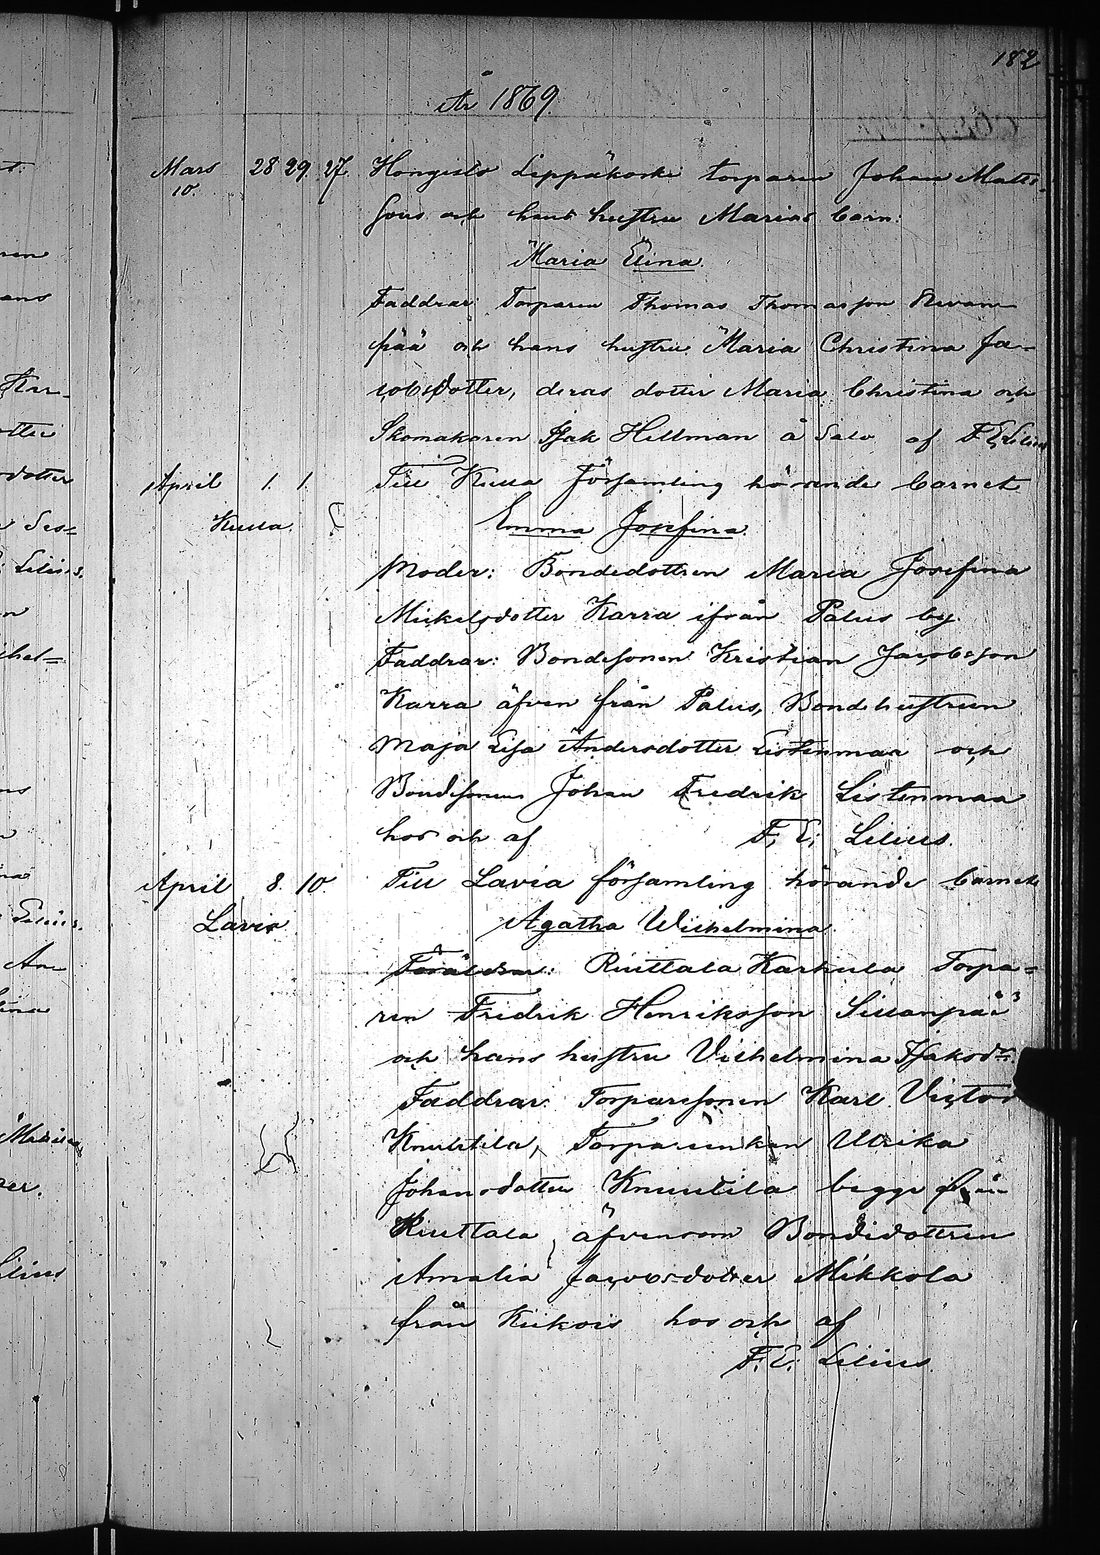 182
År 1869.
Mars 28 29 27 Hongisto Leppäkoski torparen Johan Matts-
10.
sons och hans hustru Marias barn:
Maria Elina.
Faddrar: Torparen Thomas Thomasson
pää och hans hustru Maria Christina Ja-
cobsdotter, deras dotter Maria Christina och
Skomakaren Isak Hellman å Salo af F. E. Lilius
April 1. 1. Till Kulla Församling hörande barnet
Kulla. Emma Josefina.
Moder: Bondedottren Maria Josefina
Mickelsdotter Karra ifrån Palus by.
Faddrar: Bondesonen Kristian Jacobsson
Karra äfven från Palus, Bondehustrun
Maja Lisa Andersdotter Listenmaa och
Bondesonen Johan Fredrik Listenmaa
hos och af F. E. Lilius.
April 8. 10. Till Lavia församling hörande barnet
Lavia Agatha Wilhelmina.
Föräldrar: Riuttala Karhula Torpa-
ren Fredrik Henriksson Sillanpää
och hans hustru Vilhelmina Isaksdr.
Faddrar: Torparesonen Karl Victor
Knuutila, Torpareenkan Ulrika
Johansdotter Knuutila begge från
Riuttala, äfvensom Bondedottren
Amalia Jacobsdotter Mikkola
från Kiikois hos och af
F. E. Lilius.